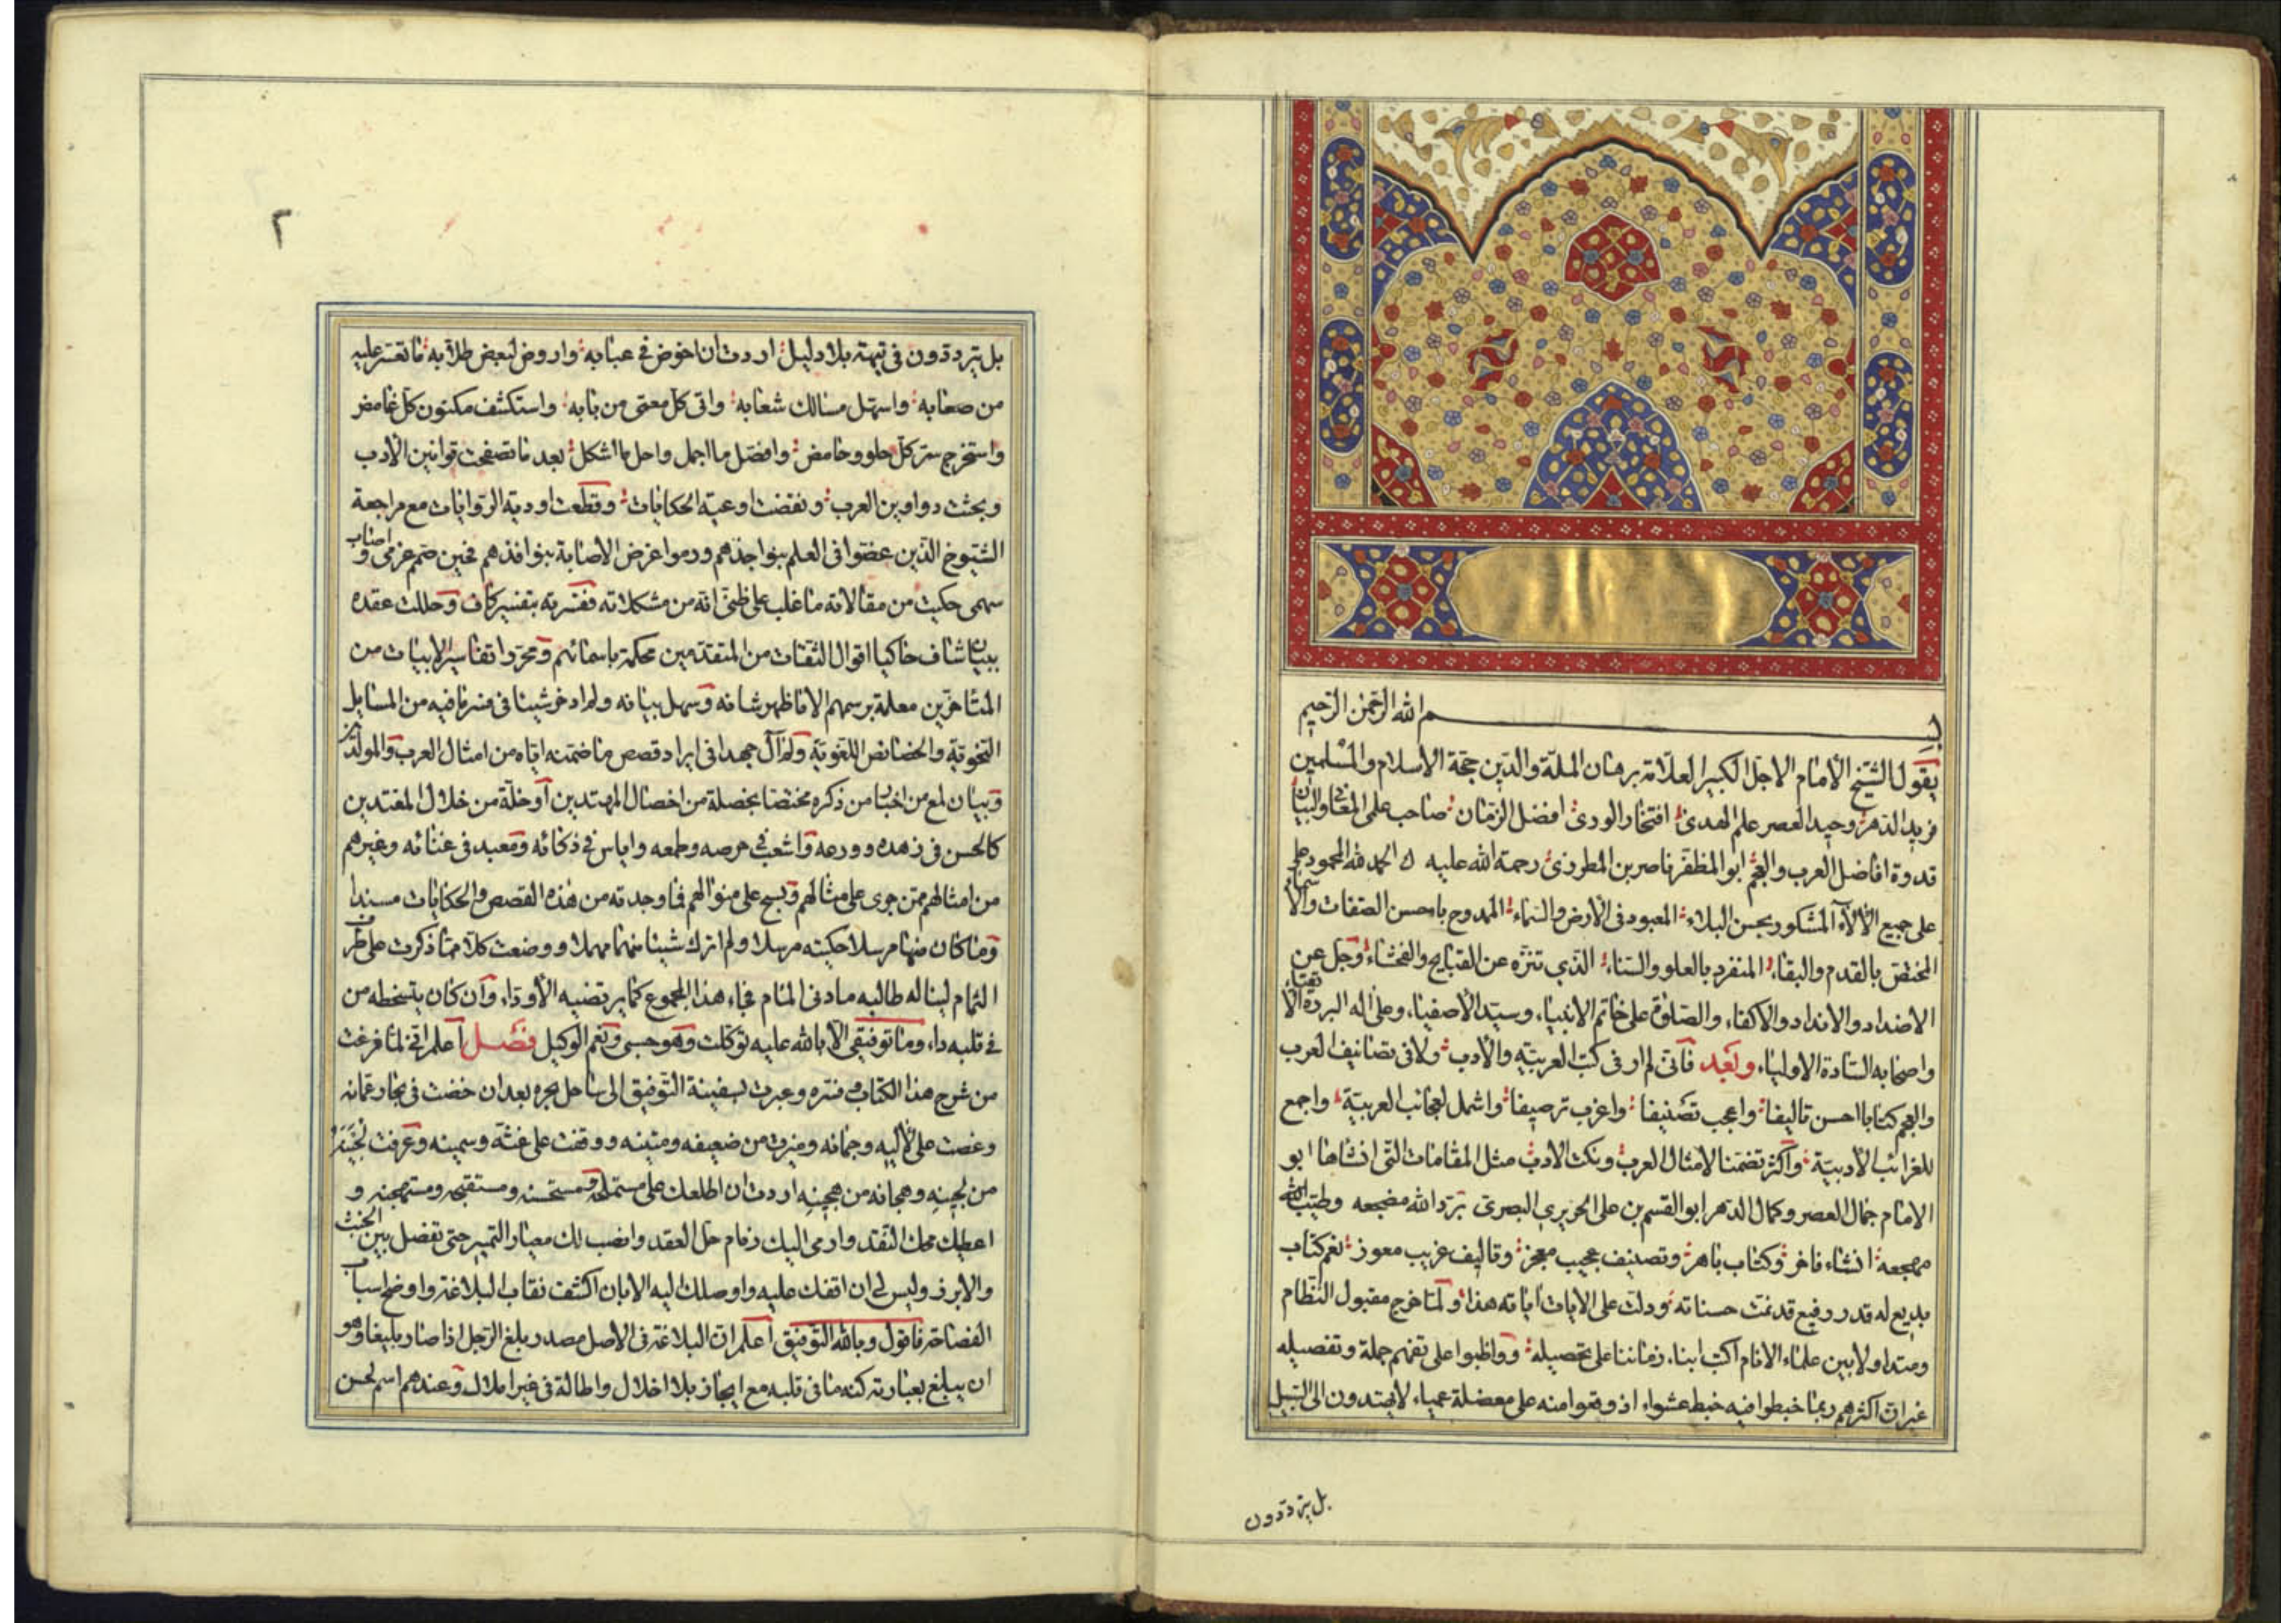 بسم الله الرحمن الرحيم
يقول الشيخ الأمام الاجل الكبير العلامة برهان الملة والدين حجة الاسلام والمسلمين
فريد الدهر وحيد العصر علم الهدى افتخار الورى افضل الزمان صاحب علمى المعانى والبيان
قدوة افاضل العرب والعجم ابو المظفر ناصر بن المطرزى رحمة الله عليه الحمد لله المحمود على
على جميع الألاء المشكور بحسن البلاء المعبود فى الأرض والسماء الممدوح باحسن الصفات والأسماء
المختص بالقدم والبقاء المنفرد بالعلو والسناء الذي تنزه عن القبايح والفحشاء وجل عن
الاضداد والانداد والاكفاء والصلوة على خاتم الانبياء وسيد الأصفياء وعلى اله البررة الأتقياء
واصحابه السادة الاولياء وبعد فأنى لم ار فى كتب العربيته والأدب ولا فى تصانيف العرب
والعجم كتابا احسن تاليفا واعجب تصنيفا واغرب ترصيفا واشمل لعجائب العربية واجمع
للغرائب الأدبية وأكثر تضمنا لامثال العرب ونكت الادب مثل المقامات التى انشاها ابو
الامام جمال العصر وكمال الدهر ابو القسم بن على الحريري البصرى برد الله مضجعه وطيب الله
مهجعه انشاء فاخر وكتاب باهر وتصنيف عجيب معجز وتاليف غريب معوز نعم كتاب
بديع له قدر رفيع قد نمت حسناته ودلت على الايات اياته هذا ولما خرج مقبول النظام
ومتداولا بين علماء الانام اكب ابناء زماننا على تحصيله وواظبوا على تفهم جملة وتفصيله
غير ان اكثرهم ربما خبطوا فيه خبط عشواء اذ وقعوا منه على معضلة عمياء لايهتدون الى السبيل
بل يترددون
٢
بل يترددون فى تيهته بلا دليل اردت ان اخوض في عبابه واروض لبعض طلابه ما تعسر عليه
من صعابه واسهل مسالك شعابه واتى كل معنى من بابه واستكشف مكنون كل غامض
واستخرج ستر كل حلو وحامض وافصل ما اجمل واحل ما اشكل بعد ما تصفحت قوانين الأدب
وبحثت دواوين العرب ونفضت اوعية الحكايات وقطعت اودية الروايات مع مراجعة
الشيوخ الذين عضوا فى العلم بنواجذهم ورموا غرض الاصابة بنوافذهم فحين صمم عزمى واصاب
سهمى حكيت من مقالاته ما غلب على ظنى انه من مشكلاته ففسرته بتفسير كاف وحللت عقده
ببيان شاف حاكيا اقوال الثقات من المتقدمين محكمة باسمائهم ومجردا تفاسير الابيات من
المتاخرين معلمة برسمهم الا ما ظهر شانه وسهل بيانه ولم ادخر شيئا فى نشر ما فيه من المسايل
النحوية والخصائص اللغوية ولم آل جهدا فى ايراد قصص ما ضمنه اياه من امثال العرب والمولدين
وبيان لمع من اخبار من ذكره مختصا بخصلة من اخصال المهتدين أو خلة من خلال المعتدين
كالحسن فى زهده وورعه واشعب فى حرصه وطمعه واياس في ذكائه ومعبد فى غنائه وغيرهم
من امثالهم ممن جرى على مثالهم ونسج على منوالهم فما وجدته من هذه القصص والحكايات مسندا
وما كان منها مرسلا حكيته مرسلا ولم اترك شيئا منها مهملا ووضعت كلا مما ذكرت على طرف
الثمام ليناله طالبه مادنى المنام فجاء هذا المجموع كما يرتضيه الأوداء وأن كان يتسخطه من
في قلبه داء وما توفيقى الا بالله عليه توكلت وهو حسبى ونعم الوكيل فصل أعلم انى لما فرغت
من شرح هذا الكتاب ونشره وعبرت بسفينة التوفيق الى ساحل بحره بعد ان خضت فى بحار عمانه
وغصت على لأليه وجمانه وميزت من ضعيفه ومتينه ووقفت على غثه وسمينه وعرفت
من لجينه وهجانه من هجينه اردت ان اطلعك على مستملحه ومستحسنه ومستقبحه ومستهجنه و
اعطيك محك النقد وارمى اليك زمام حل العقد وانصب لك معيار التمييز حتى تفصل بين الخبث
والابرز وليس لى ان اقفك عليه واوصلك اليه الا بان اكشف نقاب البلاغة واوضح اسباب
الفصاحة فاقول وبالله التوفيق أعلم ان البلاغة فى الاصل مصدر بلغ الرجل اذا صار بليغا وهو
ان يبلغ بعبارته كنه ما فى قلبه مع ايجاز بلا اخلال واطالة فى غير املال وعندهم اسم لحسن